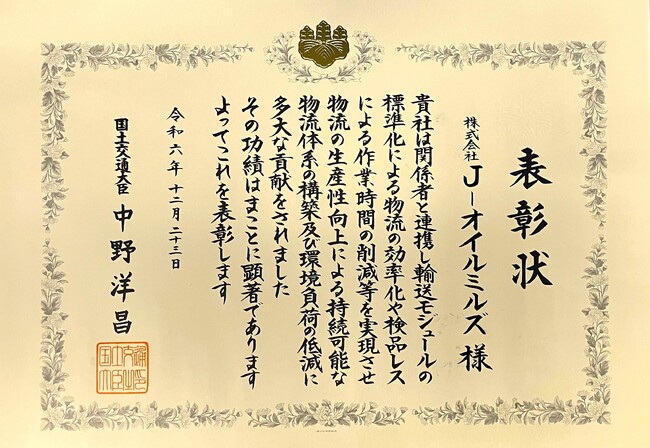 表彰状
株式会社 J-オイルミルズ 様
貴社は関係者と連携し輸送モジュールの
標準化による物流の効率化や検品レス
による作業時間の削減等を実現させ
物流の生産性向上による持続可能な
物流体系の構築及び環境負荷の低減に
多大な貢献をされました
その功績はまことに顕著であります
よってこれを表彰します
令和六年 十二月 二十三日
国土交通大臣 中野洋昌